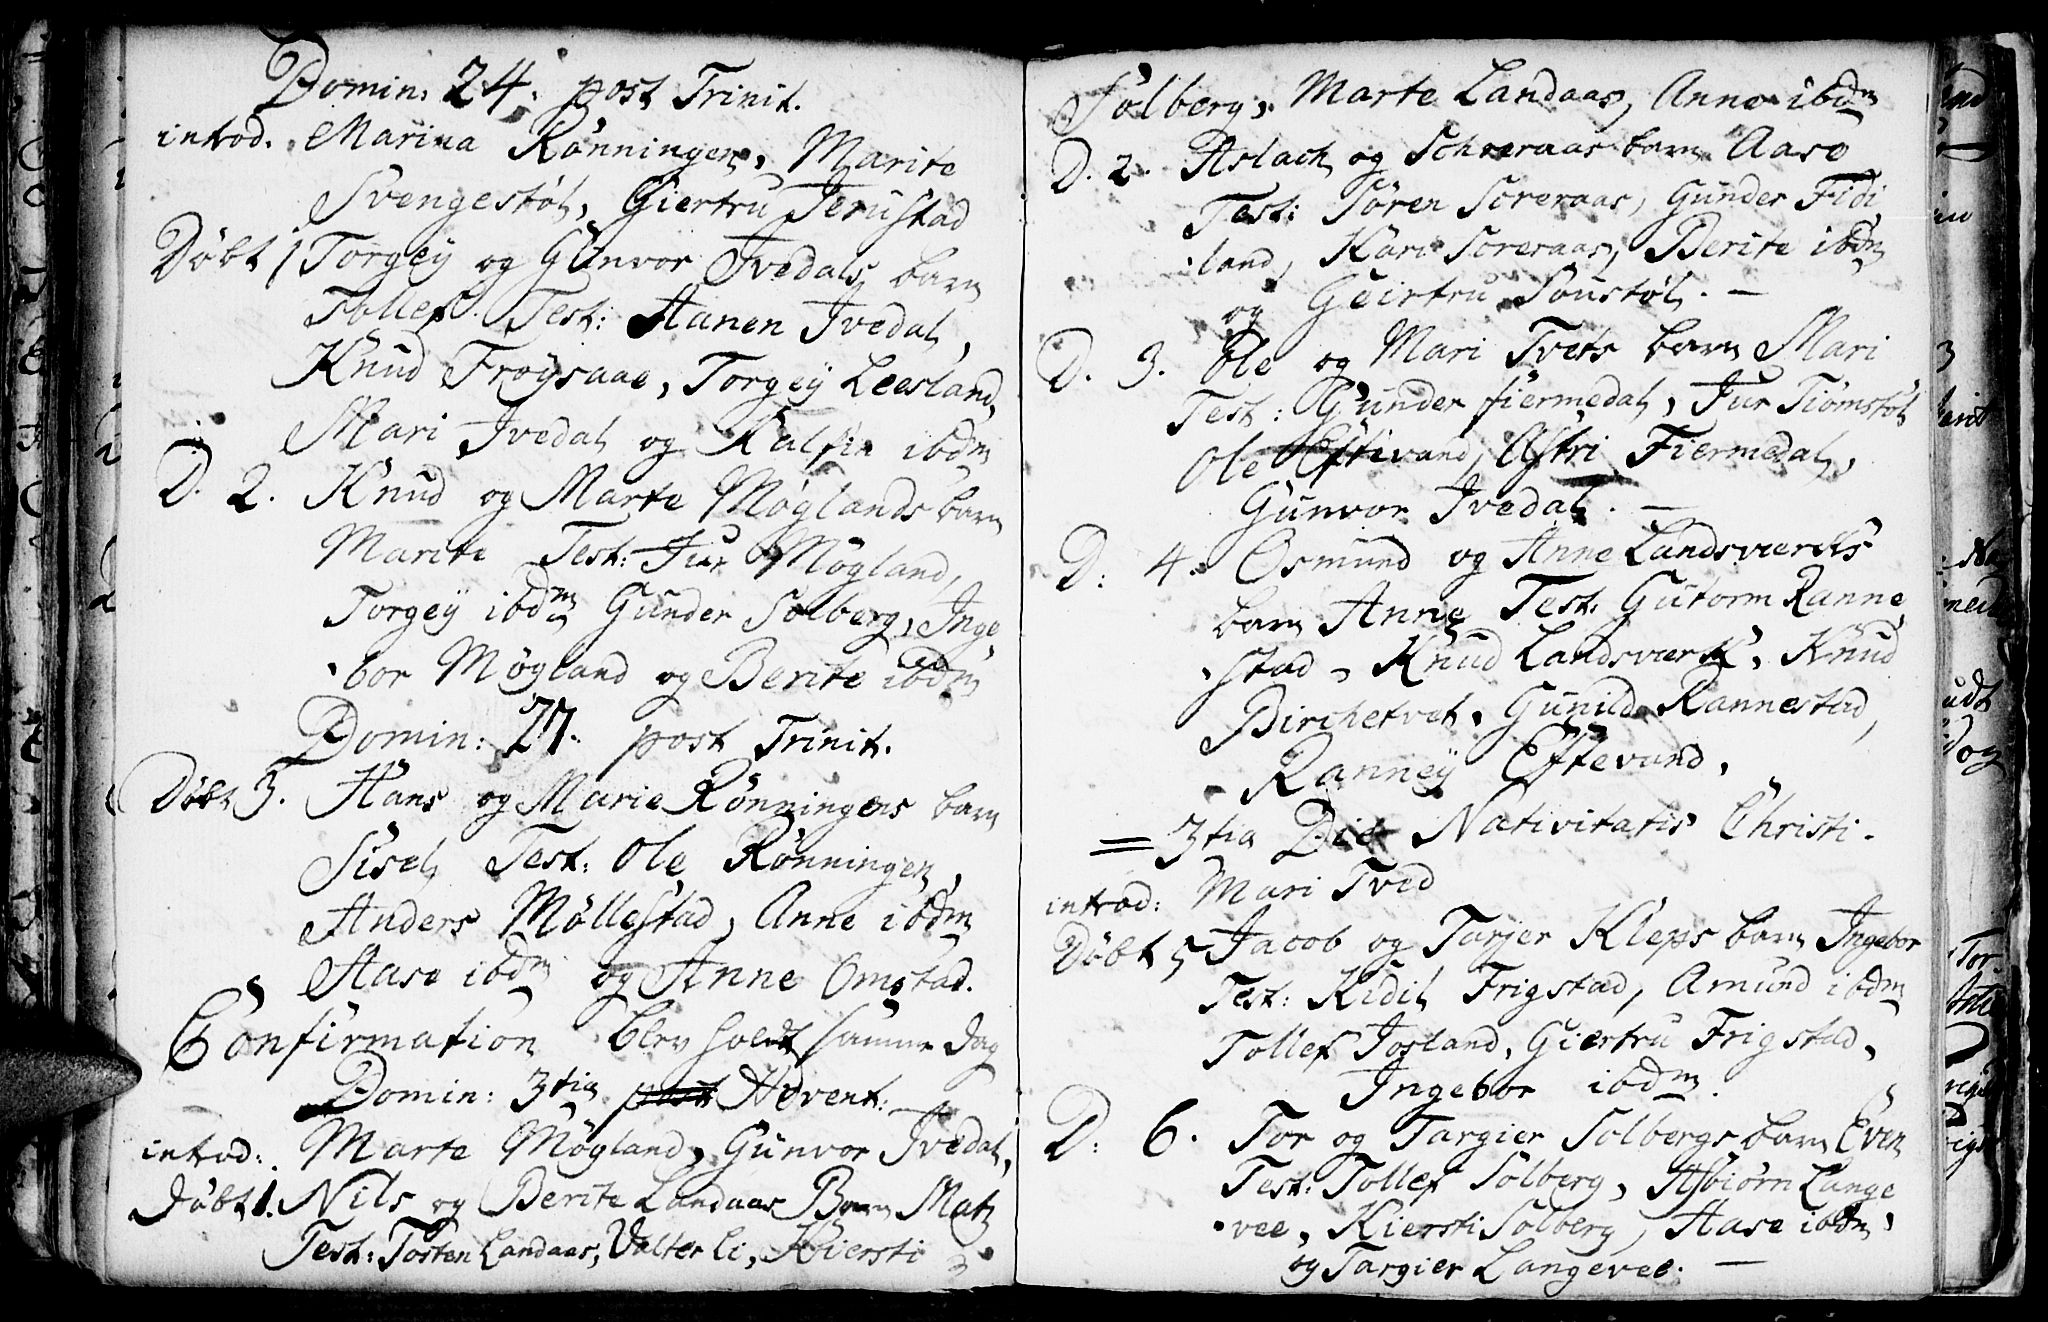 Domin: 24. post Trinit.
introd. Marina Rønningen, Marite
Svengestøl, Giertru Terustad
Døbt 1 Torgeÿ og Gunvor Ivedals barn
Tollef. Test: Hanen Ivedal,
Knud Frøysaae, Torgeÿ Leesland,
Mari Ivedal og Ralfin ibdm
D. 2. Knud og Marte Møglands barn
Marite Test: Jur Mögland,
Torgeÿ ibdm Gunder Solberg, Inge
bor Mögland og Berite ibdm
Domin: 27. post Trinit.
Døbt 3. Hans og Marie Rønningens barn
Sisel Test: Ole Rønningen,
Anders Møllestad, Anne ibdm
Aase ibdm og Anne Omstad.
Confirmation blev holdt samme dag
Domin: 3tia post Advent:
introd: Marte Møgland, Gunvor Ivedal,
Døbt 1. Nils og Berite Landaas Barn Mat
Test: Tosten Landaas, Valter Li, Kiersti
Solberg, Marte Landaas, Anne ibdm
D. 2. Aslach og barn Aase
Test: Søren Soreraas, Gunder Fidi
land, Kari Soreraas, Berite ibdm
og Geirtru Soustøl. —
D. 3. Ole og Mari Tvets barn Mari
Test: Gunder fiermedal, Jur Tiømstøl
Ole Eftivand, Astri Fiermedal,
Gunvor Ivedal. —
D: 4. Osmund og Anne Landsværks
barn Anne Test: Gutorm Ranne
stad, Knud Landsværk, Knud
Birchetvet, Gunild Rannestad,
Ranneÿ Eftevand.
= 3tia Die Nativitatis Christi.
introd: Mari Tved
Døbt 5 Jacob og Tarjer Kleps barn Ingebor
Test: Kidil Frigstad, Amund ibdm
Tollef Josland, Giertru Frigstad,
Ingebor ibdm.
D: 6. Tor og Targier Solbergs barn Even
Test: Tollef Solberg, Asbiørn Lange
vee, Kiersti Solberg, Aase ibdm,
og Targier Langevee. —